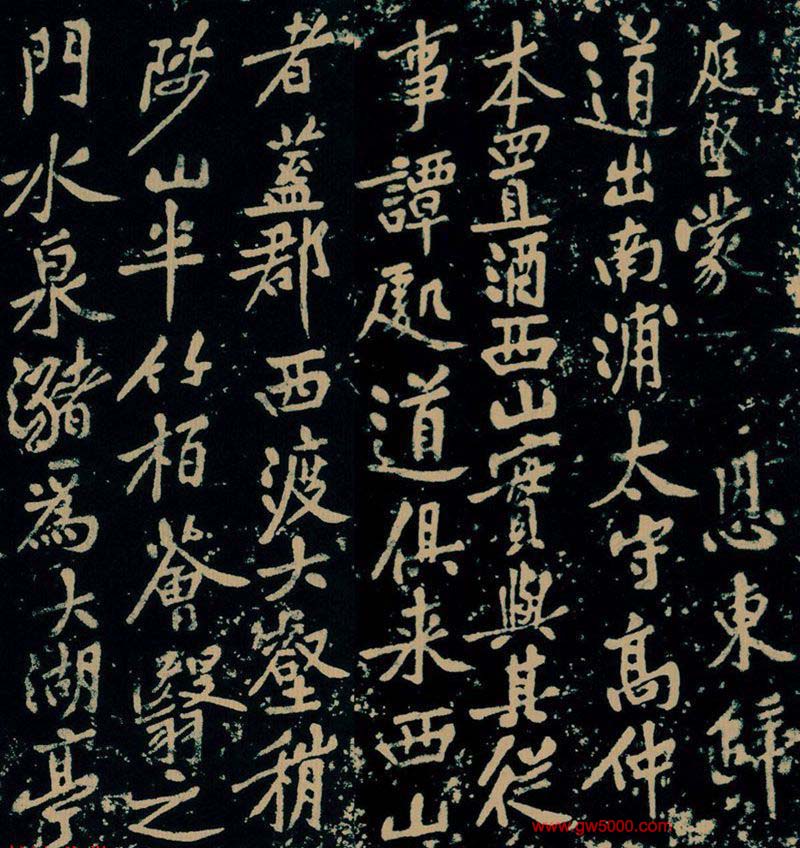 庭堅蒙 恩東歸
道出南浦太守高仲
本置酒西山實與其從
事譚處道俱来西山
者蓋郡西渡大壑稍
陟山半竹柏薈翳之
門水泉瀦爲大湖亭
www.gw5000.com